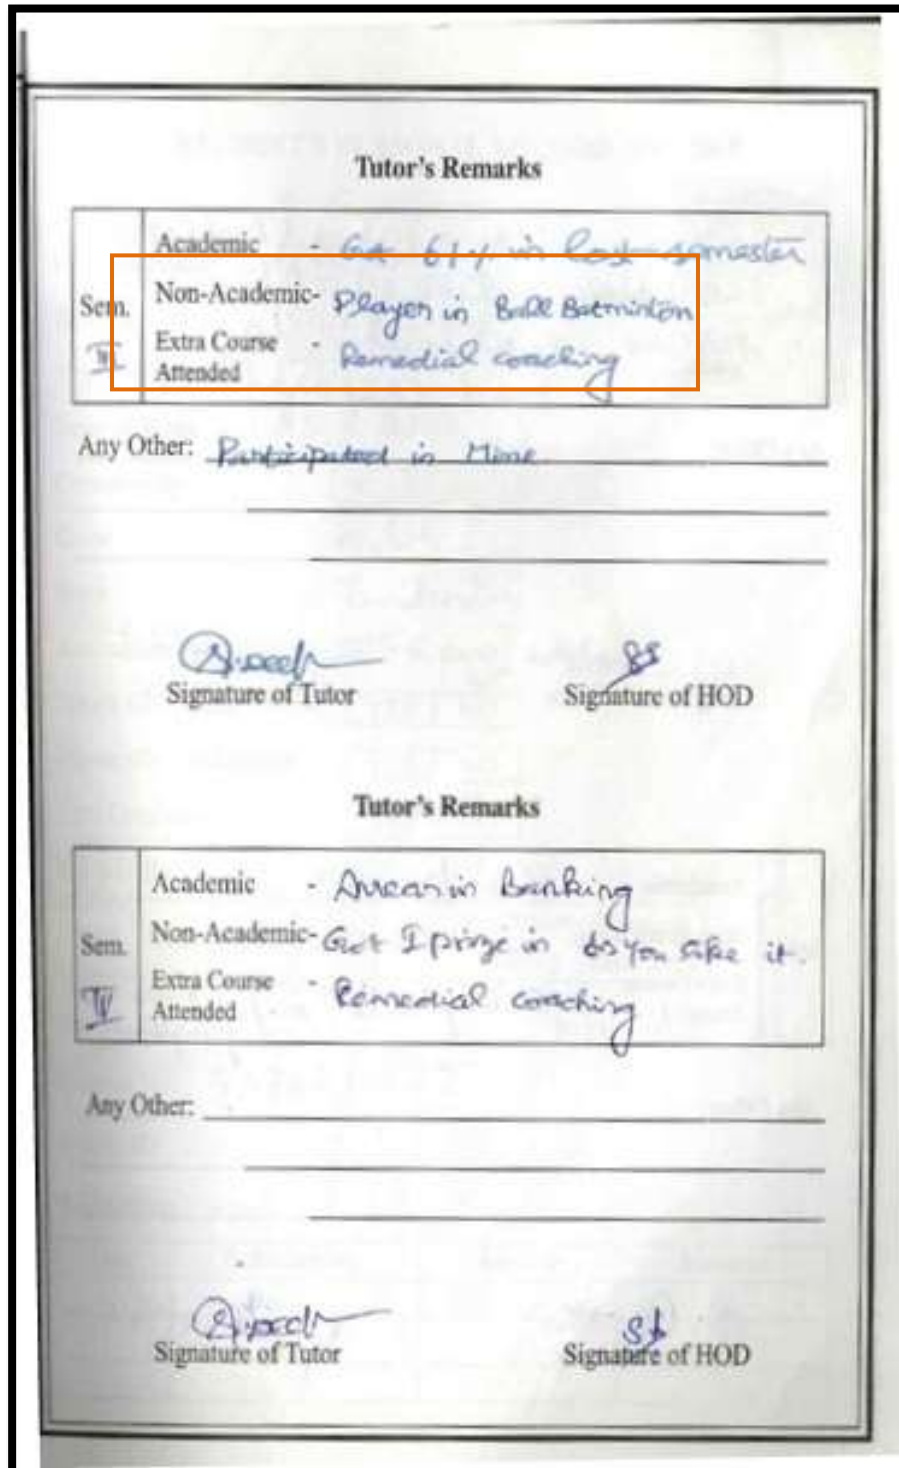 Tutor's Remarks
Academic - Got 61% in last semester
Sem. Non-Academic- Player in Ball Batminton
III Extra Course Attended - Remedial coaching
Any Other: Participated in Mime
Signature of Tutor Signature of HOD
Tutor's Remarks
Academic - Arrear in Banking
Sem. Non-Academic- Got I prize in do you take it.
IV Extra Course Attended - Remedial coaching
Any Other:
Signature of Tutor Signature of HOD